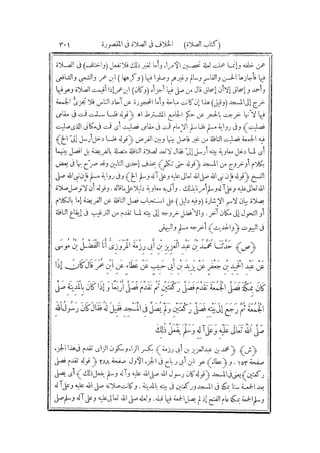 (كتاب الصلاة) (الخلاف في الصلاة في المقصورة) ٣٠٤
عن خلفه وإنما عملت لعلة تحصين الأمراء. وأما لغير ذلك فلا تفعل (واختلف) في الصلاة
فيها فأجازها الحسن والقاسم وسالم وغيرهم وصلوا فيها (وكرهها) ابن عمر والشعبي والشافعي
وأحمد وإسحاق إلا أن إسحاق قال من صلى فيها أجزأه (وكان) ابن عمر إذا أقيمت الصلاة وهو فيها
خرج إلى المسجد (وقيل) هذا إن كانت مباحة وأما المحجورة عن آحاد الناس فلا تجزئ الجمعة
فيها لأنها خرجت بالحجر عن حكم الجامع المشترط اهـ (قوله فلما سلمت قمت في مقامي
فصليت) وفي رواية مسلم فلما سلم الإمام قمت في مقامي فصليت أي قمت في مكاني الذي صليت
فيه الجمعة فصليت النافلة من غير فاصل بينها وبين الفرض (قوله فلما دخل أرسل إلي الخ)
أي لما دخل معاوية بيته أرسل إلي فقال لا تعد لصلاة النافلة متصلة بالفريضة بل افصل بينهما
بكلام أو خروج من المسجد (قوله حتى تكلم) بحذف إحدى التاءين وقد صرح بها في بعض
النسخ (قوله فإن نبي الله صلى الله تعالى عليه وعلى آله وسلم الخ) وفي رواية مسلم فإن نبي الله صلى
الله تعالى عليه وعلى آله وسلم أمرنا بذلك. وأتى به معاوية دليلا على ما قاله. وقوله أن لا توصل صلاة
بصلاة بيان لاسم الإشارة (وفيه دليل) على استحباب فصل النافلة عن الفريضة إما بالكلام
أو التحول إلى مكان آخر. والأفضل خروجه إلى بيته لما تقدم من الترغيب في إيقاع النافلة
في البيوت (والحديث) أخرجه مسلم والبيهقي
(ص) حدثنا محمد بن عبد العزيز بن أبي رزمة المروزي أنا الفضل بن موسى
عن عبد الحميد بن جعفر عن يزيد بن أبي حبيب عن عطاء عن ابن عمر قال كان إذا
كان بمكة فصلى الجمعة تقدم فصلى ركعتين ثم تقدم فصلى أربعا وإذا كان بالمدينة صلى
الجمعة ثم رجع إلى بيته فصلى ركعتين ولم يصل في المسجد فقيل له فقال كان رسول الله
صلى الله تعالى عليه وعلى آله وسلم يفعل ذلك
(ش) (محمد بن عبد العزيز بن أبي رزمة) بكسر الراء وسكون الزاي تقدم في هذا الجزء
صفحة ١٥٣. و (عطاء) هو ابن أبي رباح في الجزء الأول صفحة ٢٨٨ (قوله تقدم فصلى
ركعتين) يعني في المسجد (قوله كان رسول الله صلى الله عليه وآله وسلم يفعل ذلك) أي يصلي
بعد الجمعة ستا بمكة في المسجد وركعتين في بيته بالمدينة. وكانت صلاته صلى الله عليه وعلى آله
وسلم الجمعة بمكة عام الفتح إذ لم يصل الجمعة فيها قبله. ولعله صلى الله تعالى عليه وعلى آله وسلم صلى